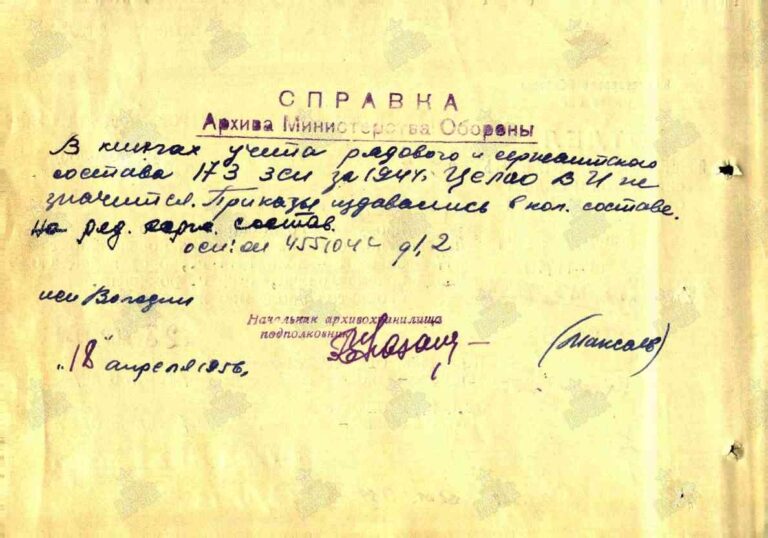 СПРАВКА
Архива Министерства Обороны
В книгах учета рядового и сержантского
состава 173 зсп за 1944г. В И не
значится. Приказы издавались в кол. составе.
на ряд. серж. состав.
осн: оп 455104с д1,2
исп
Начальник архивохранилища
подполковник
"18" апреля 1956г.